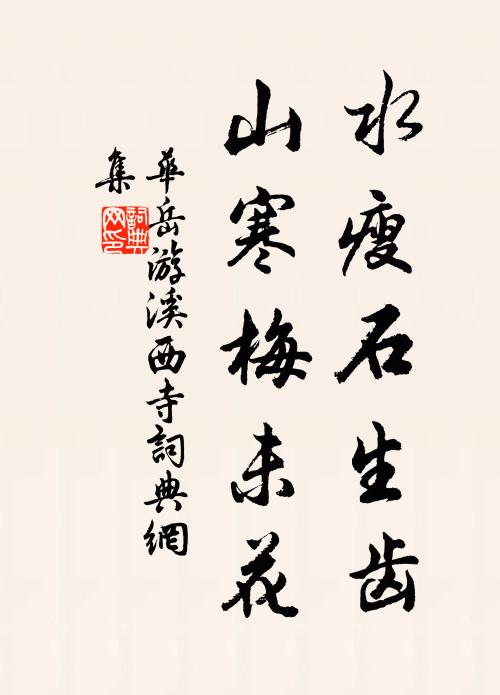 水瘦石生齿
山寒梅未花
華岳游溪西寺詞典網
集
詞典
网印